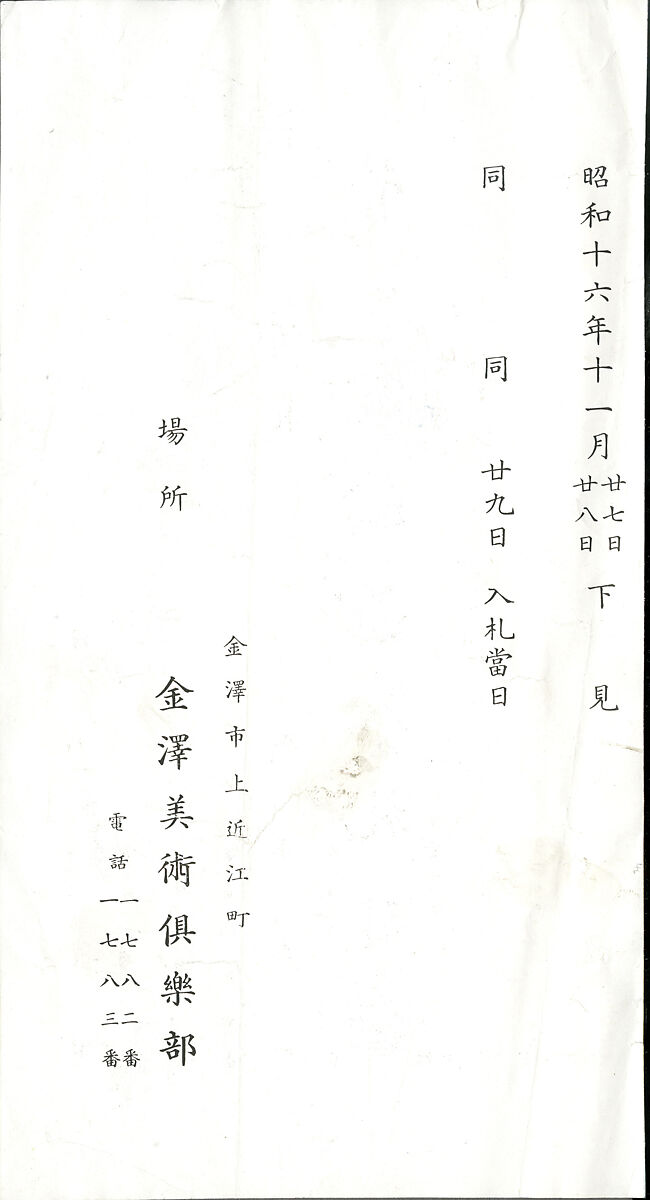 昭和十六年十一月廿七日廿八日下見
同同廿九日入札當日
金澤市上近江町
場所金澤美術俱樂部
電話一七八二番一七八三番